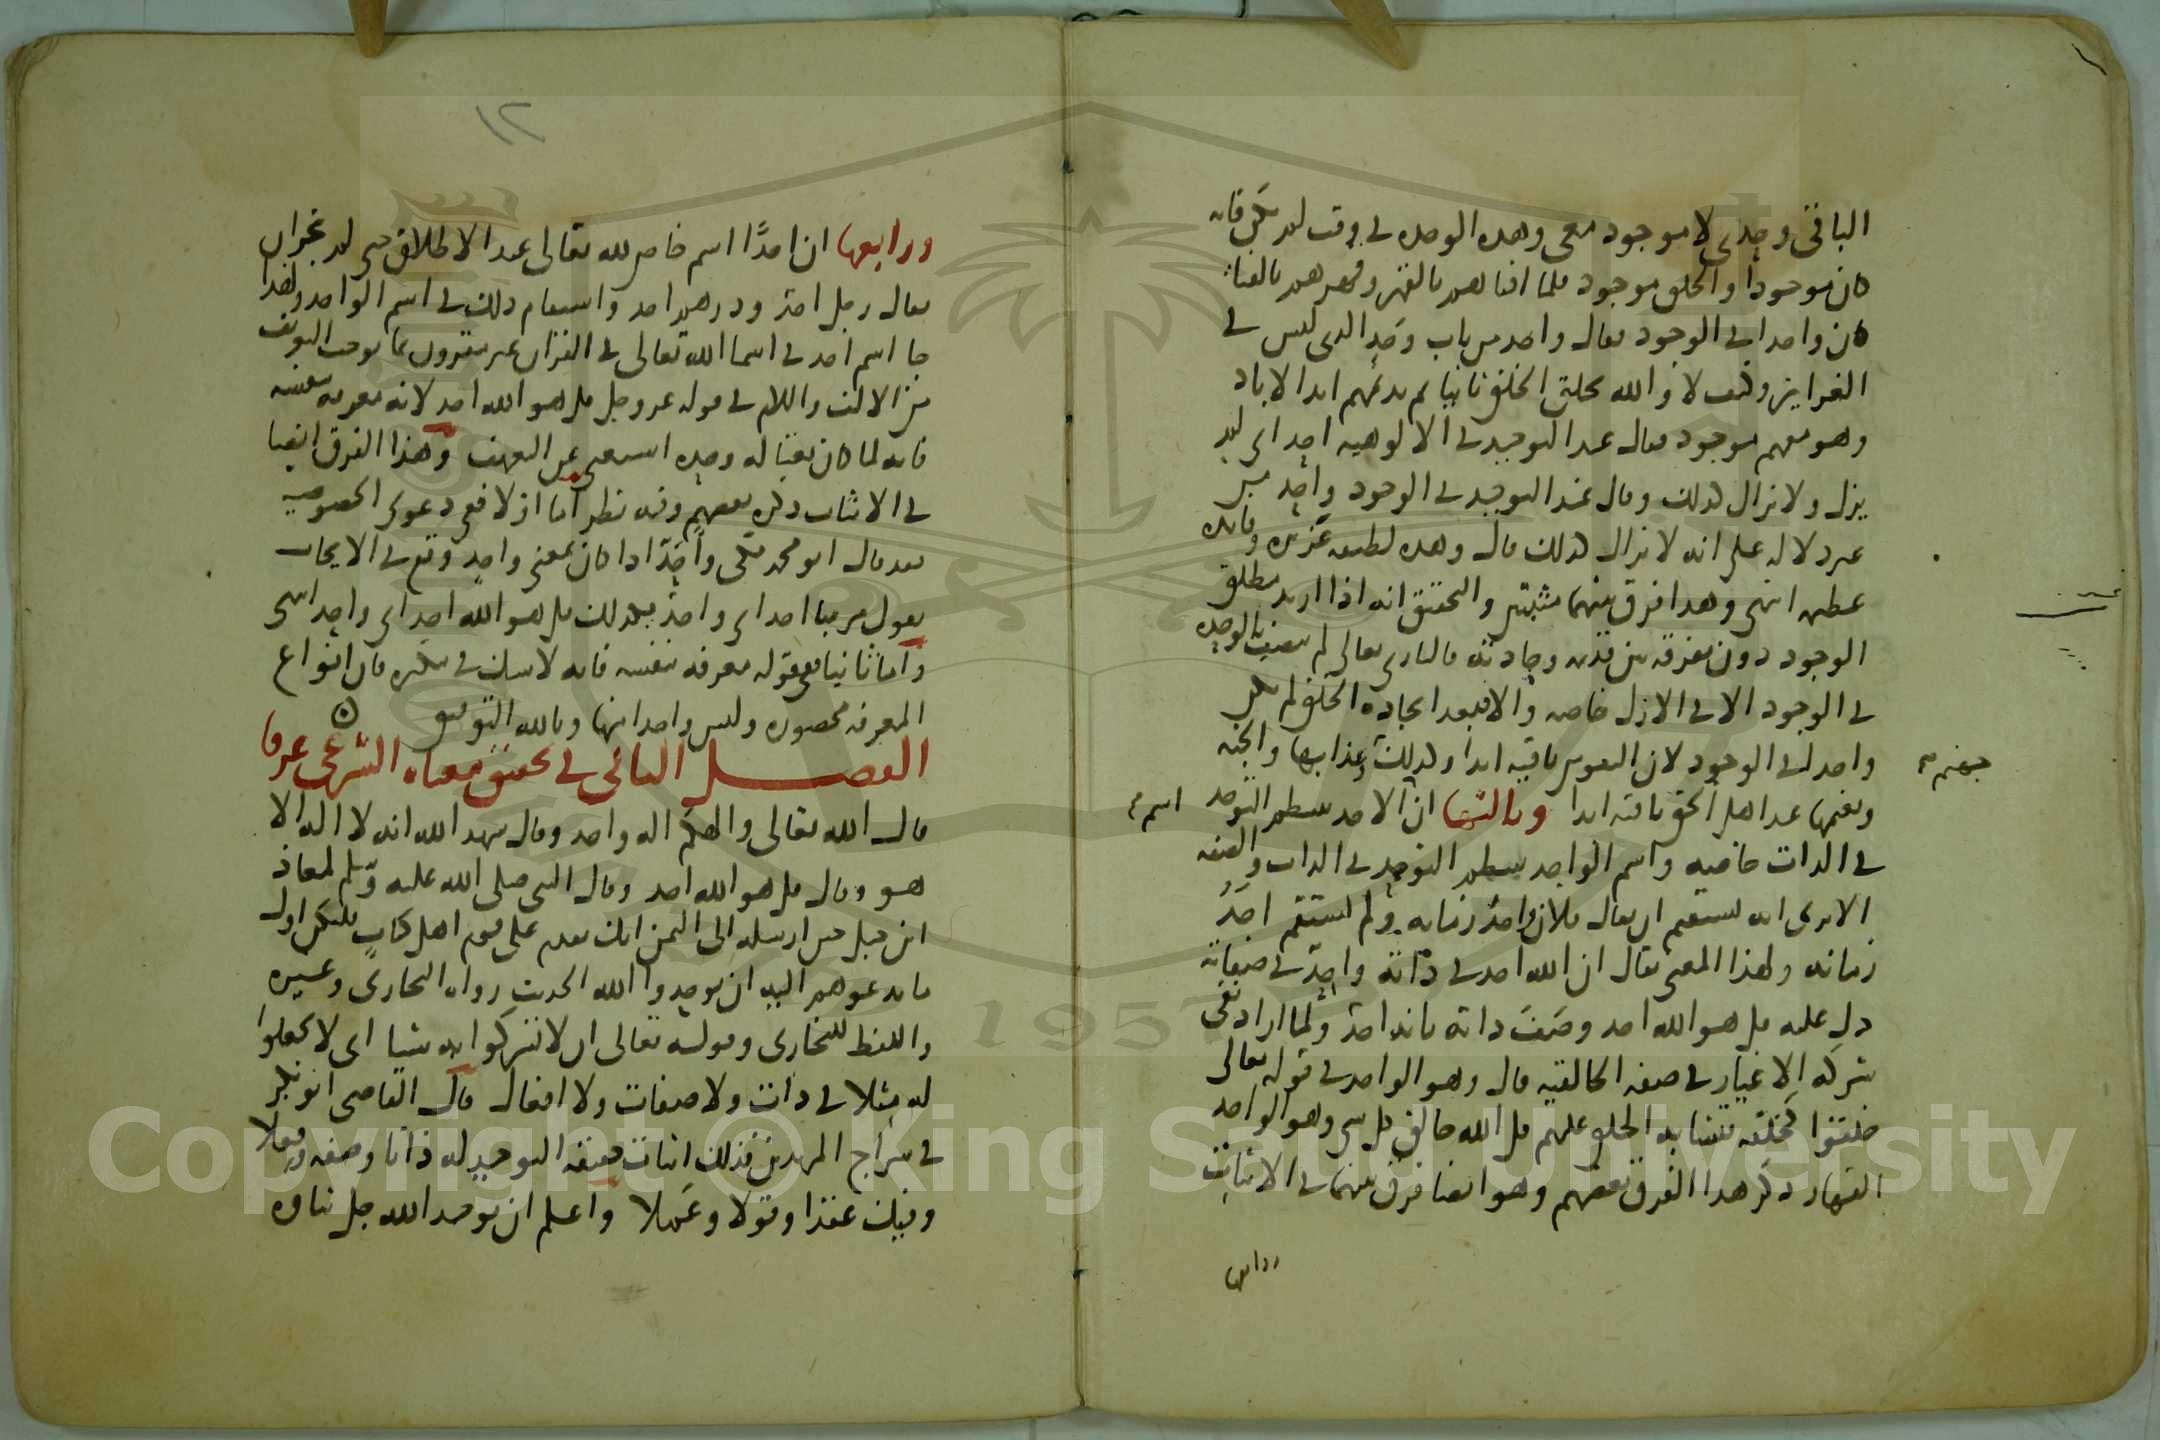 الباقى وحدى لا موجود معى وهذه الوحده فى وقت لم يكن فانه
كان موجودا والخلق موجود فلما افناهم بالقهر وقهرهم بالفناء
كان واحدا فى الوجود فقال واحد من باب وحد الذى ليس فى
الغرايز وكيف لا والله يخلق الخلق ثانيا ثم يديمهم ابد الاباد
وهو معهم موجود فقال عند التوحيد فى الالوهيه احد اى لم
يزل ولا يزال كذلك وقال عند التوحيد فى الوجود واحد من
غير دلاله على انه لا يزال كذلك قال وهذه لطيفه عزيزه وفايده
عظيمه انتهى وهذا فرق بينهما مثبتين والتحقيق انه اذا اريد مطلق
الوجود دون تفرقه بين قديمه وحادثه فالبارى تعالى لم يتصف بالوحده
فى الوجود الا فى الازل خاصه والا فبعد ايجاده الخلق لم يكن
واحدا فى الوجود لان النفوس باقيه ابدا وكذلك عذابها والجنه
جهنم صح
ونعيمها عند اهل الحق باقيه ابدا وثالثها ان الاحد ينتظم التوحد
اسم
فى الذات خاصه واسم الواحد ينتظم التوحد فى الذات والصفه
الا ترى انه يستقيم ان يقال فلان واحد زمانه ولم يستقم احد
زمانه ولهذا المعنى يقال ان الله احد فى ذاته واحد فى صفاته
دل عليه قل هو الله احد وصف ذاته بانه احد ولما اراد نفى
شركه الاغيار فى صفه الخالقيه قال وهو الواحد فى قوله تعالى
خلقوا كخلقه فتشابه الخلق عليهم قل الله خالق كل شى وهو الواحد
القهار ذكر هذا الفرق بعضهم وهو ايضا فرق بينهما فى الاثبات
ورابعها
ورابعها ان احدًا اسم خاص لله تعالى عند الاطلاق حتى لم يجز ان
يقال رجل احد ودرهم احد واستقام ذلك فى اسم الواحد ولهذا
جا اسم احد فى اسما الله تعالى فى القران غير مقرون بما يوجب التعريف
من الالف واللام فى قوله عز وجل قل هو الله احد لانه معرفه بنفسه
فانه لما كان نعتا له وحده استغنى عن التعريف وهذا الفرق ايضا
فى الاثبات ذكره بعضهم وفيه نظر اما اولا ففى دعوى الخصوصيه
فقد قال ابو محمد مكى واحد اذا كان بمعنى واحد وقع فى الايجاب
يقول مر بنا احد اى واحد فكذلك قل هو الله احد اى واحد انتهى
واما ثانيا ففى قوله معرفه بنفسه فانه لا شك فى تنكيره فان انواع
المعرفه محصوره وليس واحدا منها وبالله التوفيق
الفصل الثانى فى تحقيق معناه الشرعى عرفا
قال الله تعالى والهكم اله واحد وقال شهد الله انه لا اله الا
هو وقال قل هو الله احد وقال النبى صلى الله عليه وسلم لمعاذ
ابن جبل حين ارسله الى اليمن انك تقدم على قوم اهل كتاب فليكن اول
ما تدعوهم اليه ان يوحدوا الله الحديث رواه البخارى وغيره
واللفظ للبخارى وقوله تعالى ان لا تشركوا به شيا اى لا تجعلوا
له مثلا فى ذات ولا صفات ولا افعال قال القاضى ابو بكر
فى سراج المريدين فذلك اثبات حقيقه التوحيد له ذاتا وصفه وفعلا
وفيك عقدا وقولا وعملا واعلم ان توحد الله جل ثناوه
١٢
Copyright © King Saud University
1957